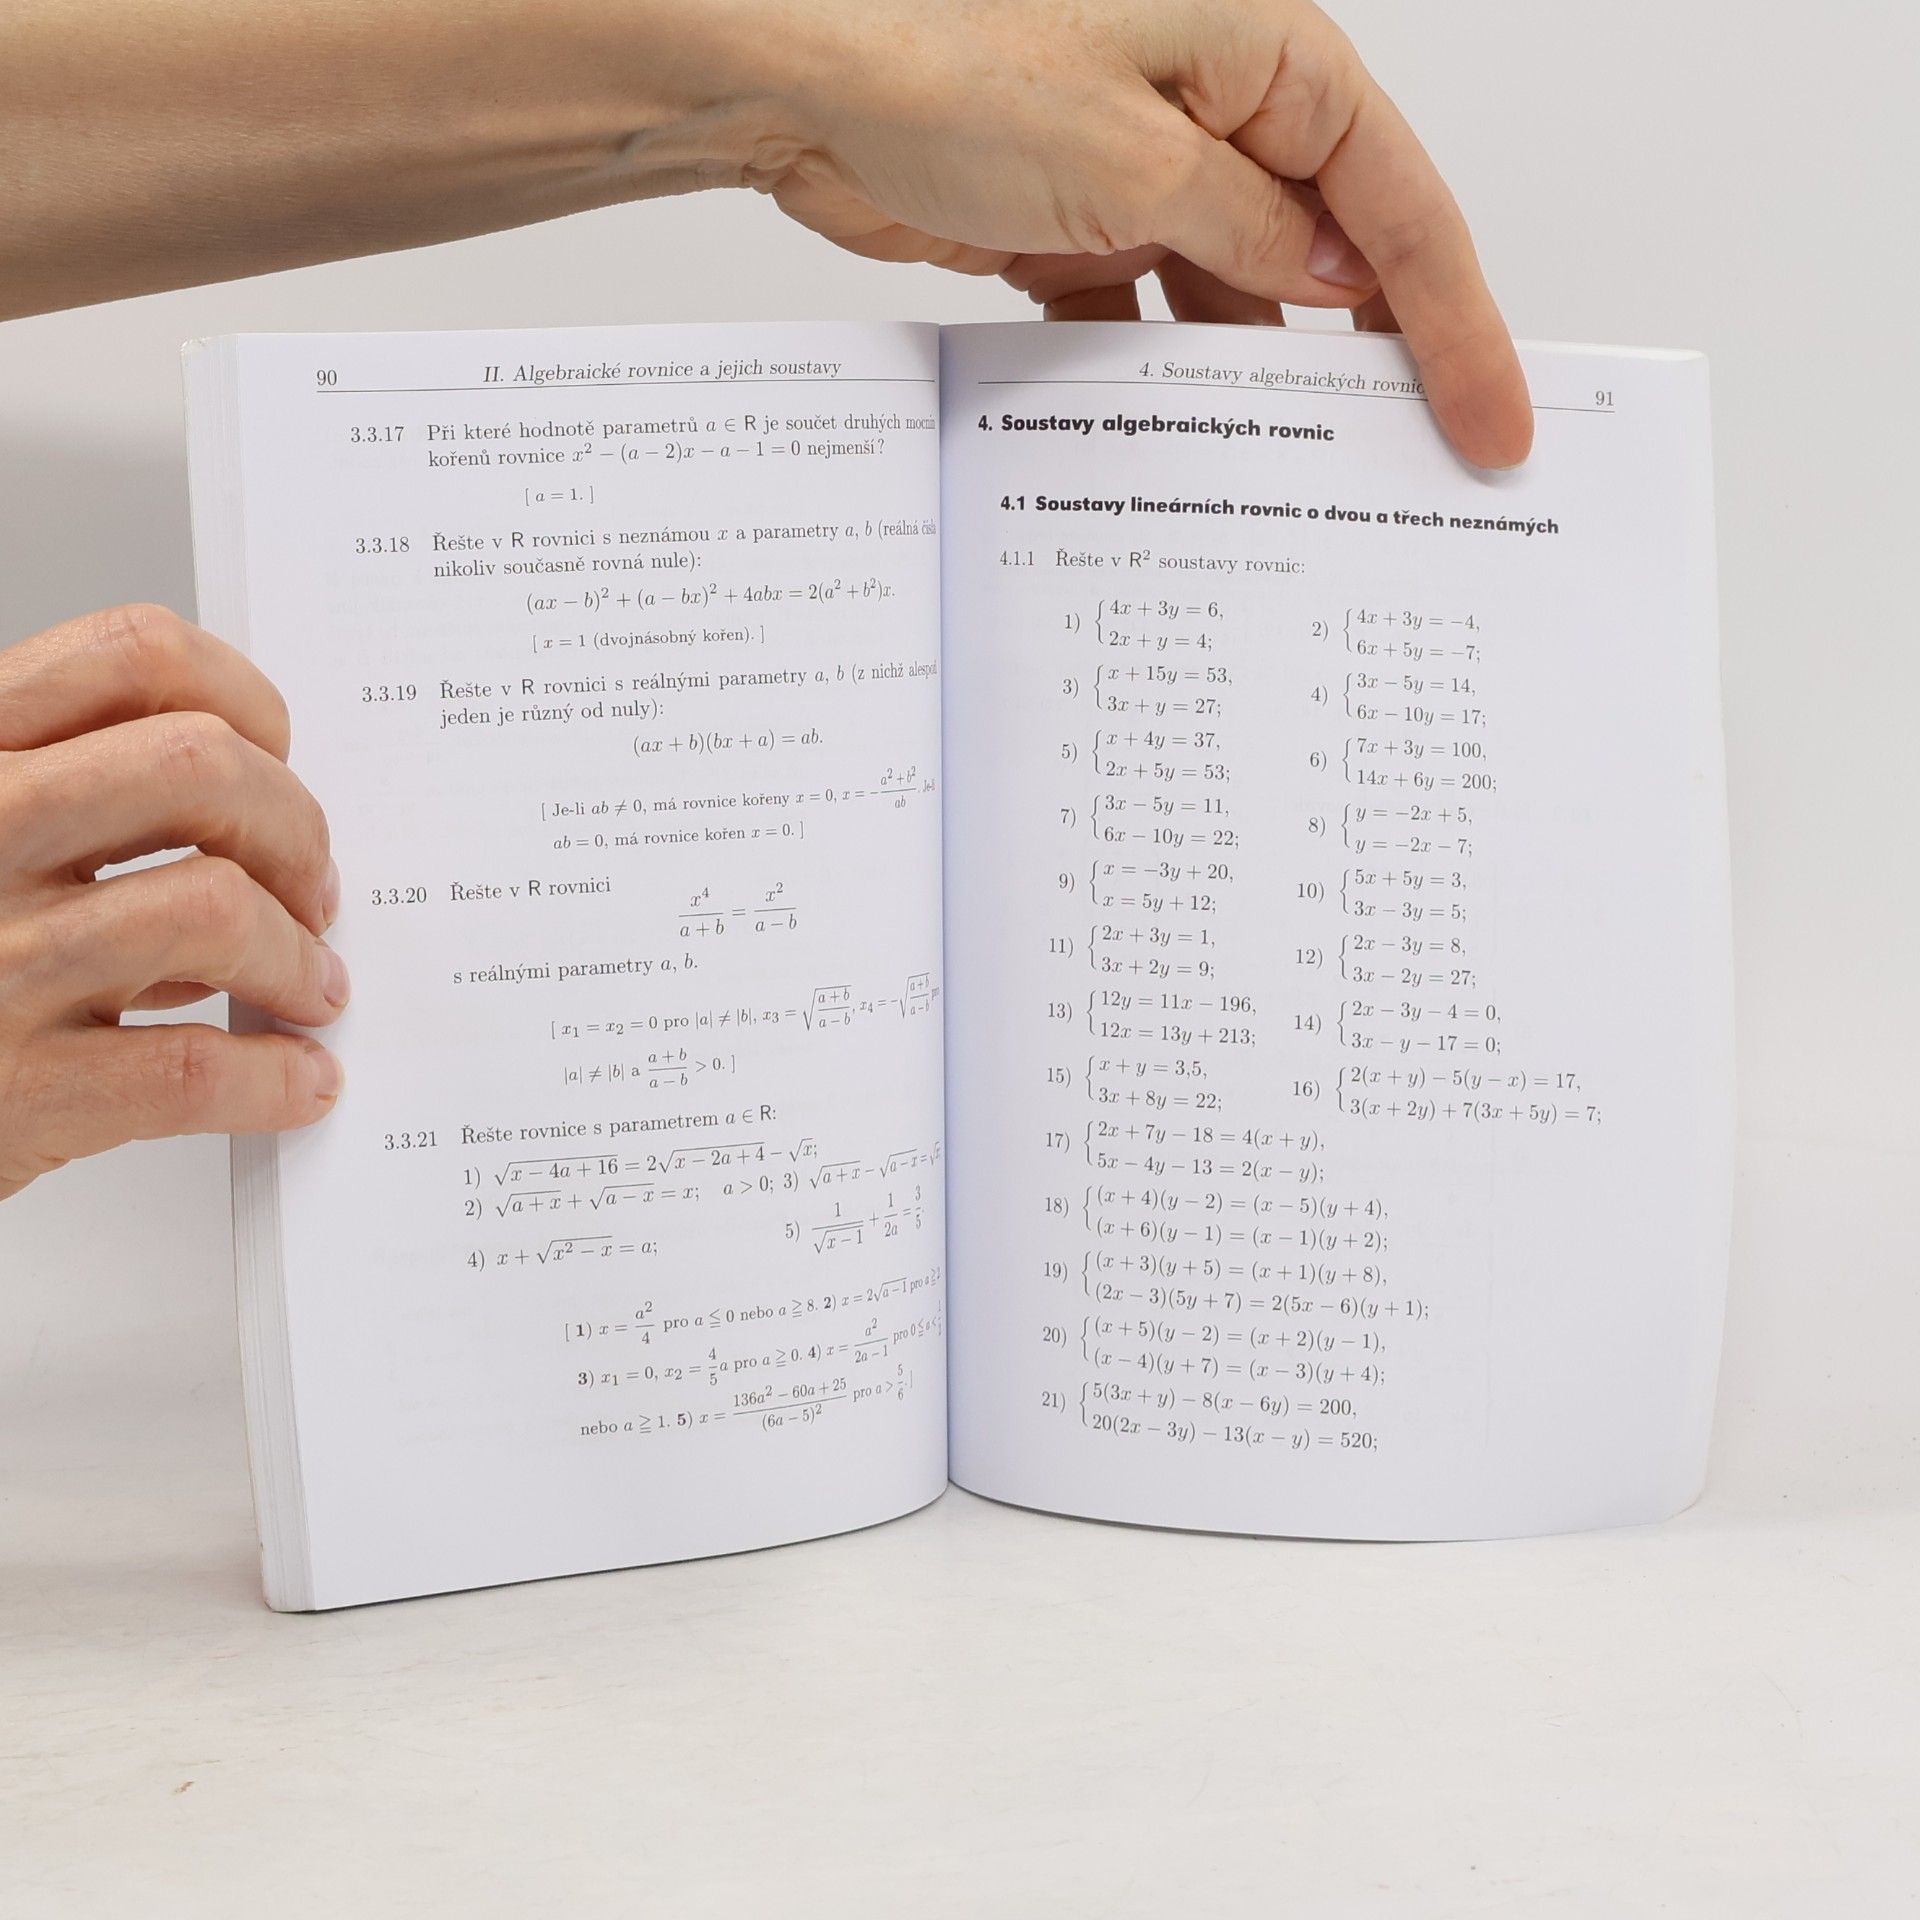 90
II. Algebraické rovnice a jejich soustavy
3.3.17 Při které hodnotě parametrů a ∈ R je součet druhých
kořenů rovnice x² − (a − 2)x − a − 1 = 0 nejmenší?
[ a = 1. ]
3.3.18 Řešte v R rovnici s neznámou x a parametry a, b (reálná
nikoliv současně rovná nule):
(ax − b)² + (a − bx)² + 4abx = 2(a² + b²)x.
[ x = 1 (dvojnásobný kořen). ]
3.3.19 Řešte v R rovnici s reálnými parametry a, b (z nichž
jeden je různý od nuly):
(ax + b)(bx + a) = ab.
[ Je-li ab ≠ 0, má rovnice kořeny x = 0, x = −(a² + b²)/ab. Je-li
ab = 0, má rovnice kořen x = 0. ]
3.3.20 Řešte v R rovnici
x⁴/(a + b) = x²/(a − b)
s reálnými parametry a, b.
[ x₁ = x₂ = 0 pro |a| ≠ |b|, x₃ = √((a + b)/(a − b)), x₄ = −√((a + b)/(a − b))
|a| ≠ |b| a (a + b)/(a − b) > 0. ]
3.3.21 Řešte rovnice s parametrem a ∈ R:
1) √(x − 4a + 16) = 2√(x − 2a + 4) − √x;
2) √(a + x) + √(a − x) = x; a > 0; 3) √(a + x) − √(a − x) =
4) x + √(x² − x) = a; 5) 1/√(x − 1) + 1/2a = 3/5.
[ 1) x = a²/4 pro a ≦ 0 nebo a ≧ 8. 2) x = 2√(a − 1) pro a ≧ 2
3) x₁ = 0, x₂ = 4/5 a pro a ≧ 0. 4) x = a²/(2a − 1) pro 0 ≦ a <
nebo a ≧ 1. 5) x = (136a² − 60a + 25)/(6a − 5)² pro a > 5/6. ]
4. Soustavy algebraických
91
4. Soustavy algebraických rovnic
4.1 Soustavy lineárních rovnic o dvou a třech neznámých
4.1.1 Řešte v R² soustavy rovnic:
1) {4x + 3y = 6,
2x + y = 4;
2) {4x + 3y = −4,
6x + 5y = −7;
3) {x + 15y = 53,
3x + y = 27;
4) {3x − 5y = 14,
6x − 10y = 17;
5) {x + 4y = 37,
2x + 5y = 53;
6) {7x + 3y = 100,
14x + 6y = 200;
7) {3x − 5y = 11,
6x − 10y = 22;
8) {y = −2x + 5,
y = −2x − 7;
9) {x = −3y + 20,
x = 5y + 12;
10) {5x + 5y = 3,
3x − 3y = 5;
11) {2x + 3y = 1,
3x + 2y = 9;
12) {2x − 3y = 8,
3x − 2y = 27;
13) {12y = 11x − 196,
12x = 13y + 213;
14) {2x − 3y − 4 = 0,
3x − y − 17 = 0;
15) {x + y = 3,5,
3x + 8y = 22;
16) {2(x + y) − 5(y − x) = 17,
3(x + 2y) + 7(3x + 5y) = 7;
17) {2x + 7y − 18 = 4(x + y),
5x − 4y − 13 = 2(x − y);
18) {(x + 4)(y − 2) = (x − 5)(y + 4),
(x + 6)(y − 1) = (x − 1)(y + 2);
19) {(x + 3)(y + 5) = (x + 1)(y + 8),
(2x − 3)(5y + 7) = 2(5x − 6)(y + 1);
20) {(x + 5)(y − 2) = (x + 2)(y − 1),
(x − 4)(y + 7) = (x − 3)(y + 4);
21) {5(3x + y) − 8(x − 6y) = 200,
20(2x − 3y) − 13(x − y) = 520;